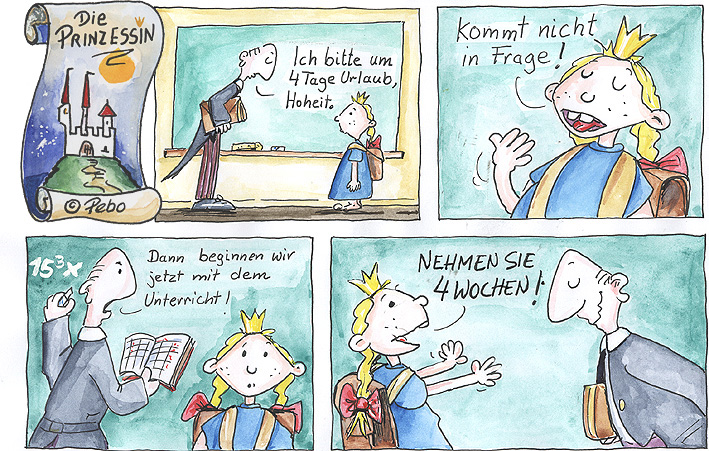 Die
PRINZESSIN
© Pebo
Ich bitte um
4 Tage Urlaub,
Hoheit.
Kommt nicht
in Frage!
15³x
Dann beginnen wir
jetzt mit dem
Unterricht!
NEHMEN SIE
4 WOCHEN!